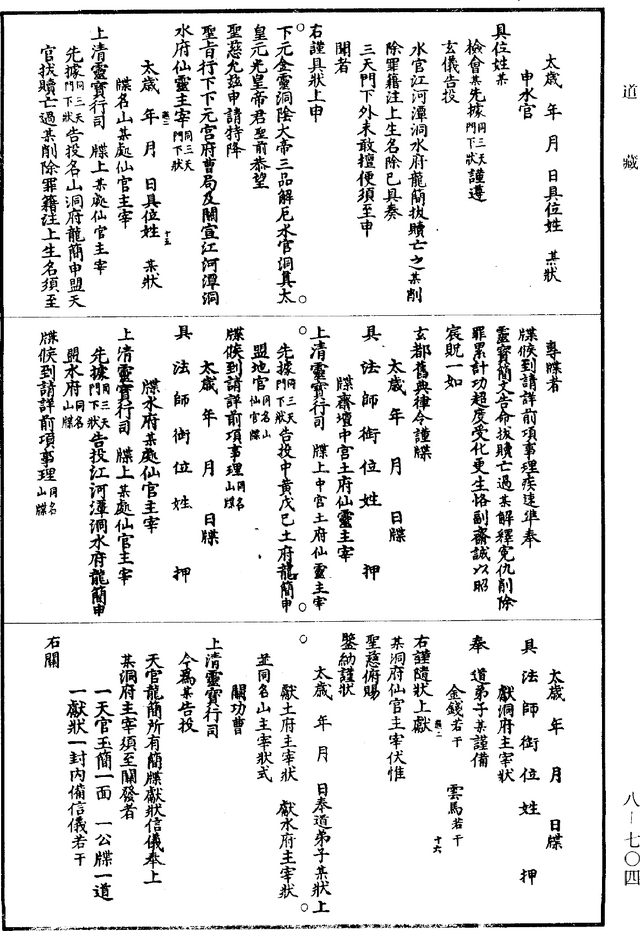 道藏
太歲　年　月　日具位姓　某狀
申水官
具位姓某
檢會某先據同三天門下狀謹遵
玄儀告投
水官江河潭洞水府龍簡拔贖亡之某削
除罪籍注上生名除已具奏
三天門下外未敢擅便須至申
聞者
右謹具狀上申
下元金靈洞陰大帝三品解厄水官洞真太
皇元光皇帝君聖前恭望
聖慈允茲申請特降
聖旨行下下元宮府曹局及關宣江河潭洞
水府仙靈主宰同三天門下狀
太歲　年　月　日具位姓　某狀
十五
牒名山某處仙官主宰
上清靈寶行司　牒上某處仙官主宰
先據同三天門下狀告投名山洞府龍簡申盟天
官拔贖亡過某削除罪籍注上生名須至
專牒者
牒候到請詳前項事理疾速準奉
靈寶簡文告命拔贖亡過某解釋冤仇削除
罪累計功超度受化更生恪副齋誠以昭
宸貺一如
玄都舊典律令謹牒
太歲　年　月　日牒
具法師銜位姓　押
牒齋壇中宮土府仙靈主宰
上清靈寶行司　牒上中宮土府仙靈主宰
先據同三天門下狀告投中黃戊己土府龍簡申
盟地官同名山仙官牒
牒候到請詳前項事理同名山牒
太歲　年　月　日牒
具法師銜位姓　押
牒水府某處仙官主宰
上清靈寶行司　牒上某處仙官主宰
先據同三天門下狀告投江河潭洞水府龍簡申
盟水府同名山牒
牒候到請詳前項事理同名山牒
太歲　年　月　日牒
具法師銜位姓　押
獻洞府主宰狀
奉　道弟子某謹備
金錢若干　雲馬若干
十六
右謹隨狀上獻
某洞府仙官主宰伏惟
聖慈俯賜
鑒納謹狀
太歲　年　月　日奉道弟子某狀上
獻土府主宰狀　獻水府主宰狀
並同名山主宰狀式
關功曹
上清靈寶行司
今為某告投
天官龍簡所有簡牒獻狀信儀奉上
某洞府主宰須至關發者
一天官玉簡一面　一公牒一道
一獻狀一封內備信儀若干
右關
八－七〇四